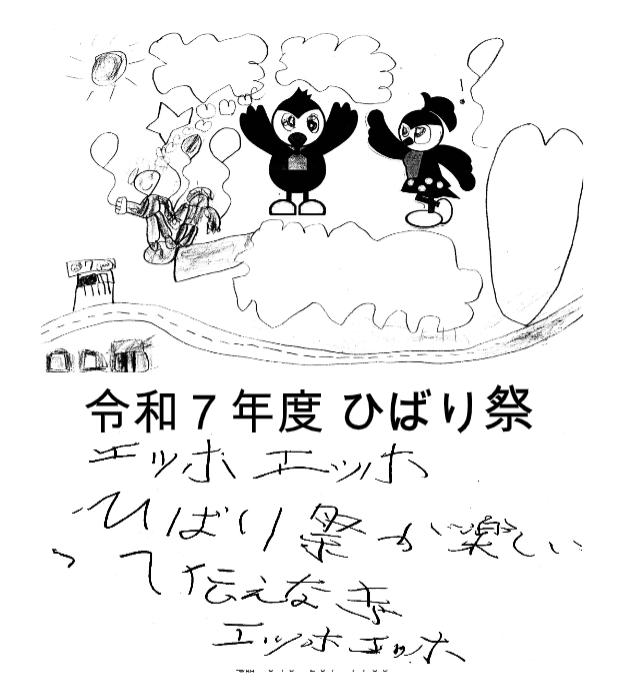 令和７年度 ひばり祭
エッホ エッホ
ひばり祭が楽しい
って伝えなき
エッホエッホ